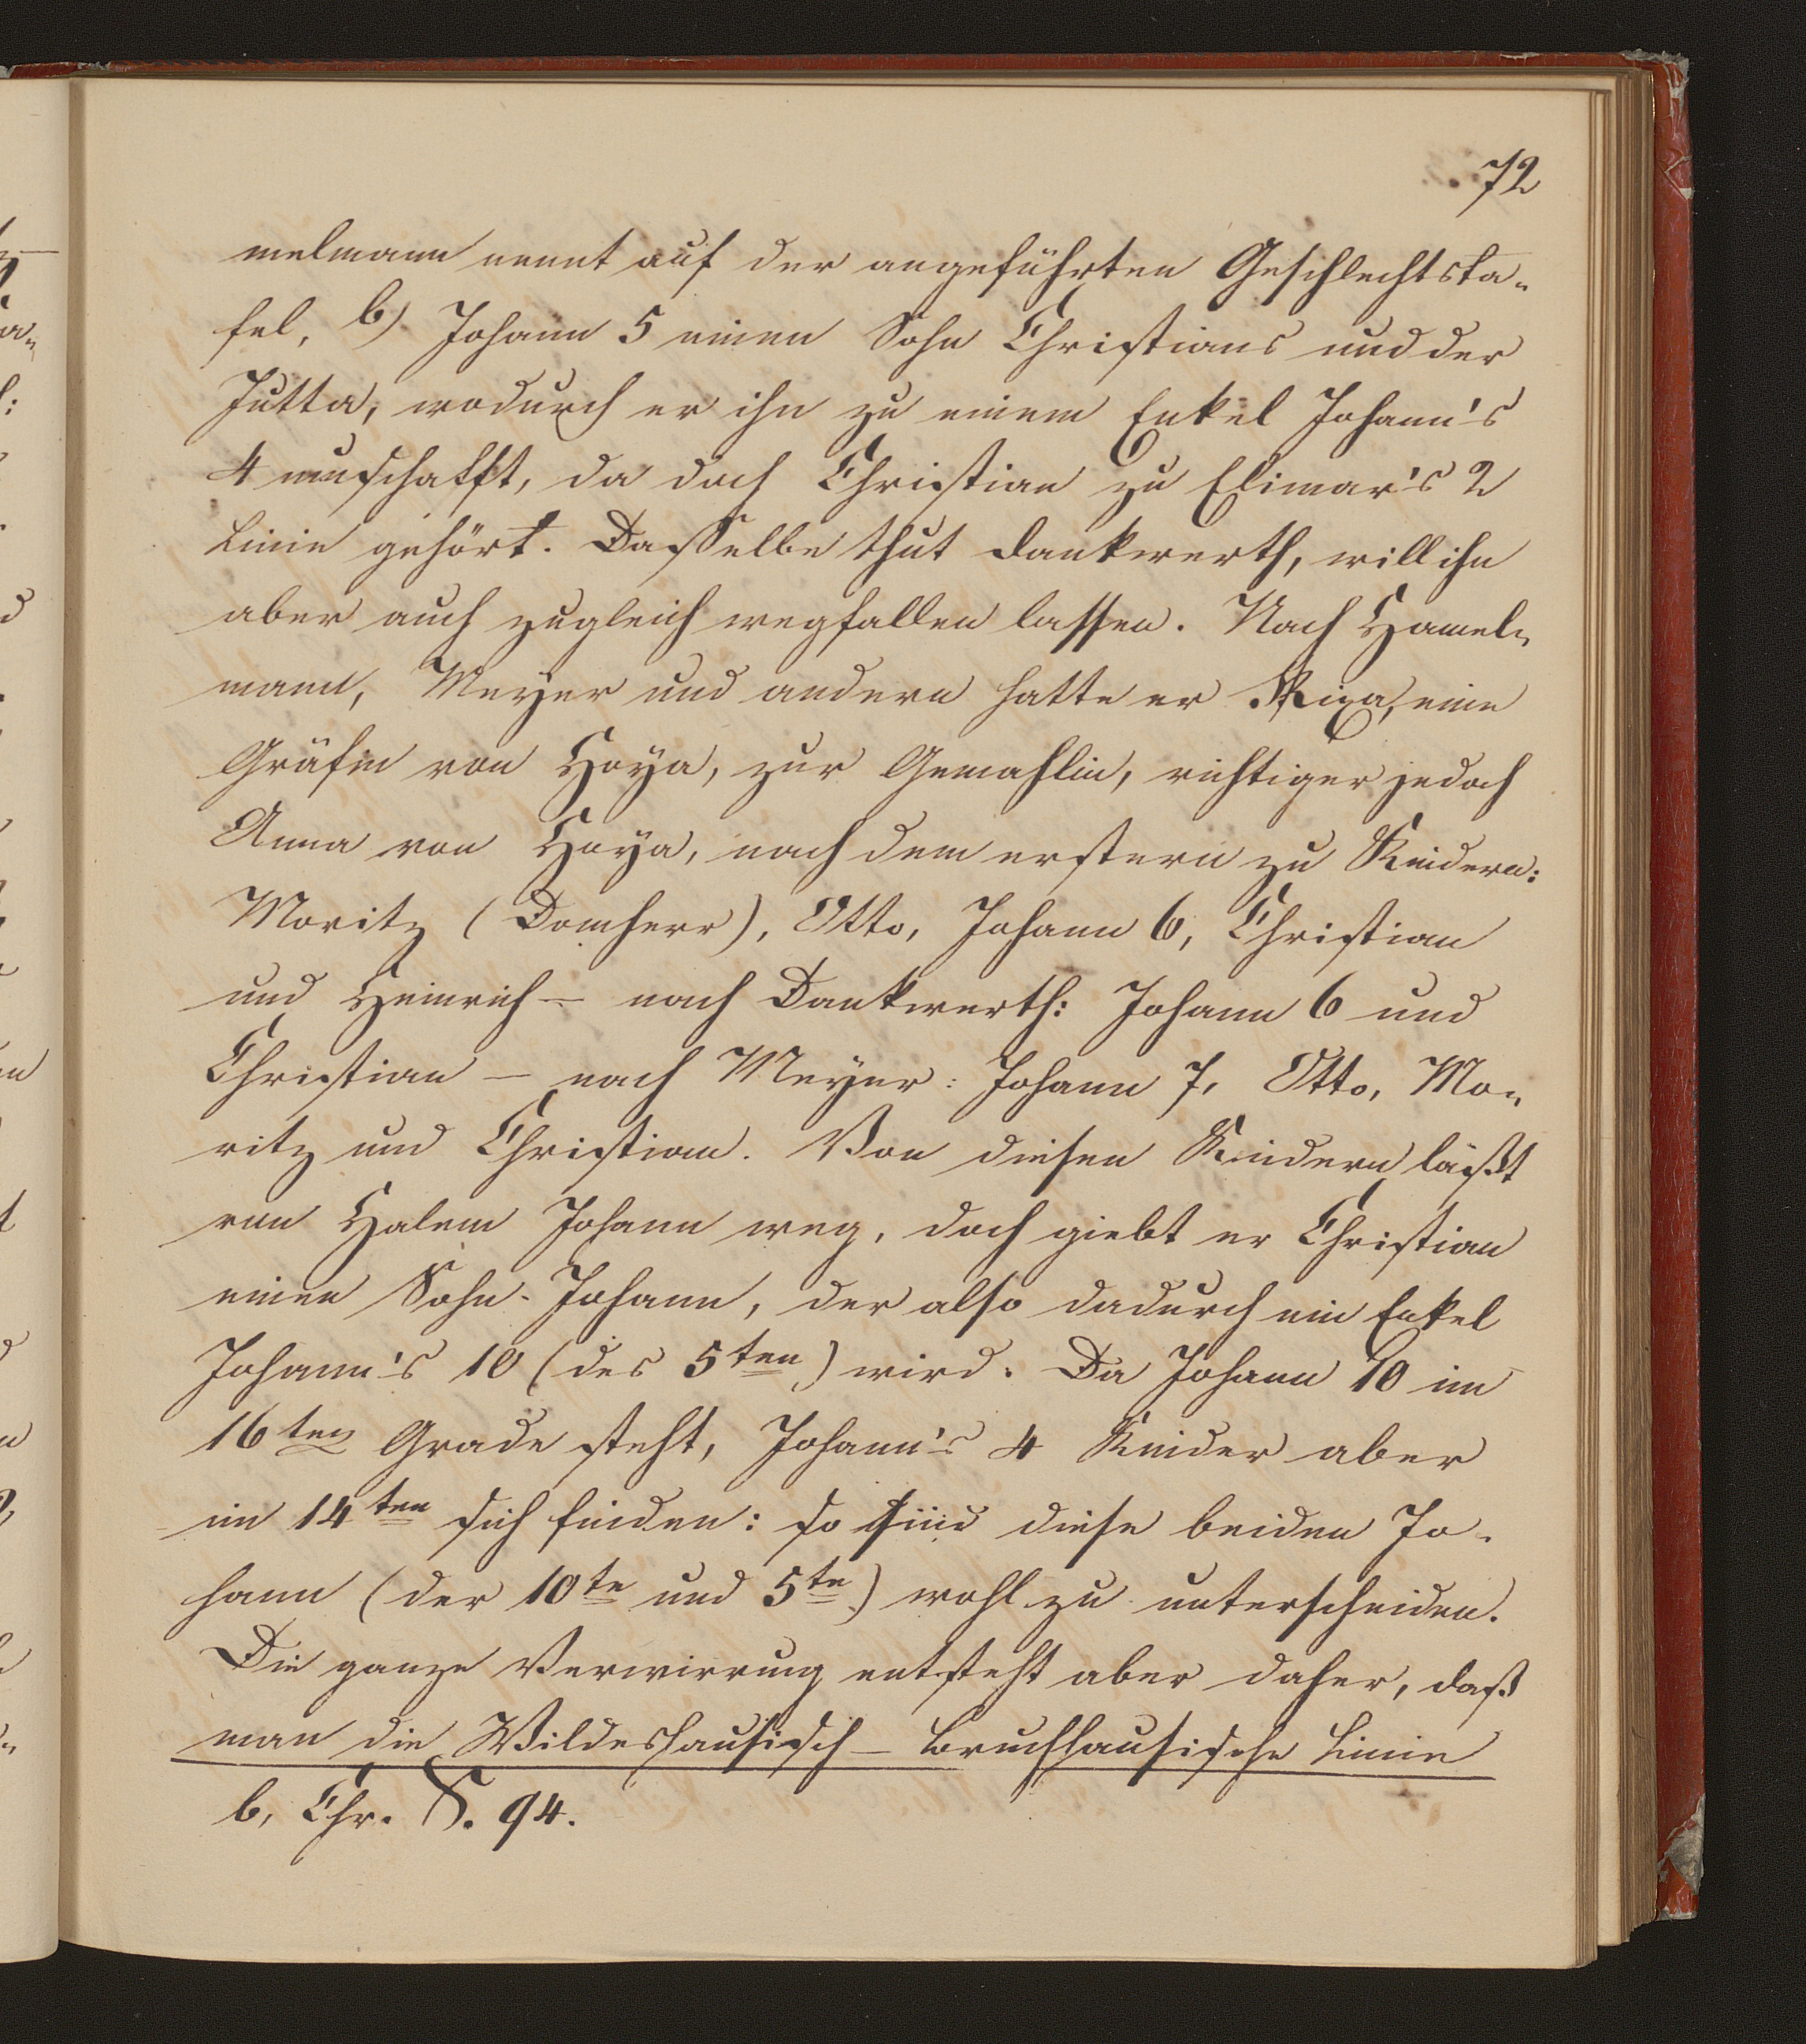 72
melmann nennt auf der angeführten Geschlechtsta-
fel, b) Johann 5 einen Sohn Christians und der
Jutta, wodurch er ihn zu einem Enkel Johann's
4 umschafft, da doch Christian zu Elimar's 2
Linie gehört. Dasselbe thut Dankwerth, will ihn
aber auch zugleich wegfallen lassen. Nach Hamel-
mann, Meyer und andern hatte er Rixa, eine
Gräfin von Hoya, zur Gemahlin, richtiger jedoch
Anna von Hoya, nach dem erstern zu Kindern:
Moritz (Domherr), Otto, Johann 6, Christian
und Heinrich — nach Dankwerth: Johann 6 und
Christian — nach Meyer: Johann 7, Otto, Mo-
ritz und Christian. Von diesen Kindern läßt
von Halem Johann weg, doch giebt er Christian
einen Sohn - Johann, der also dadurch ein Enkel
Johann's 10 (des 5ten) wird. Da Johann 10 im
16ten Grade steht, Johann's 4 Kinder aber
im 14ten sich finden: so sind diese beiden Jo-
hann (der 10te und 5te) wohl zu unterscheiden.
Die ganze Verwirrung entsteht aber daher, daß
man die Wildeshausisch - Bruchhausische Linie
b, Chr. S. 94.